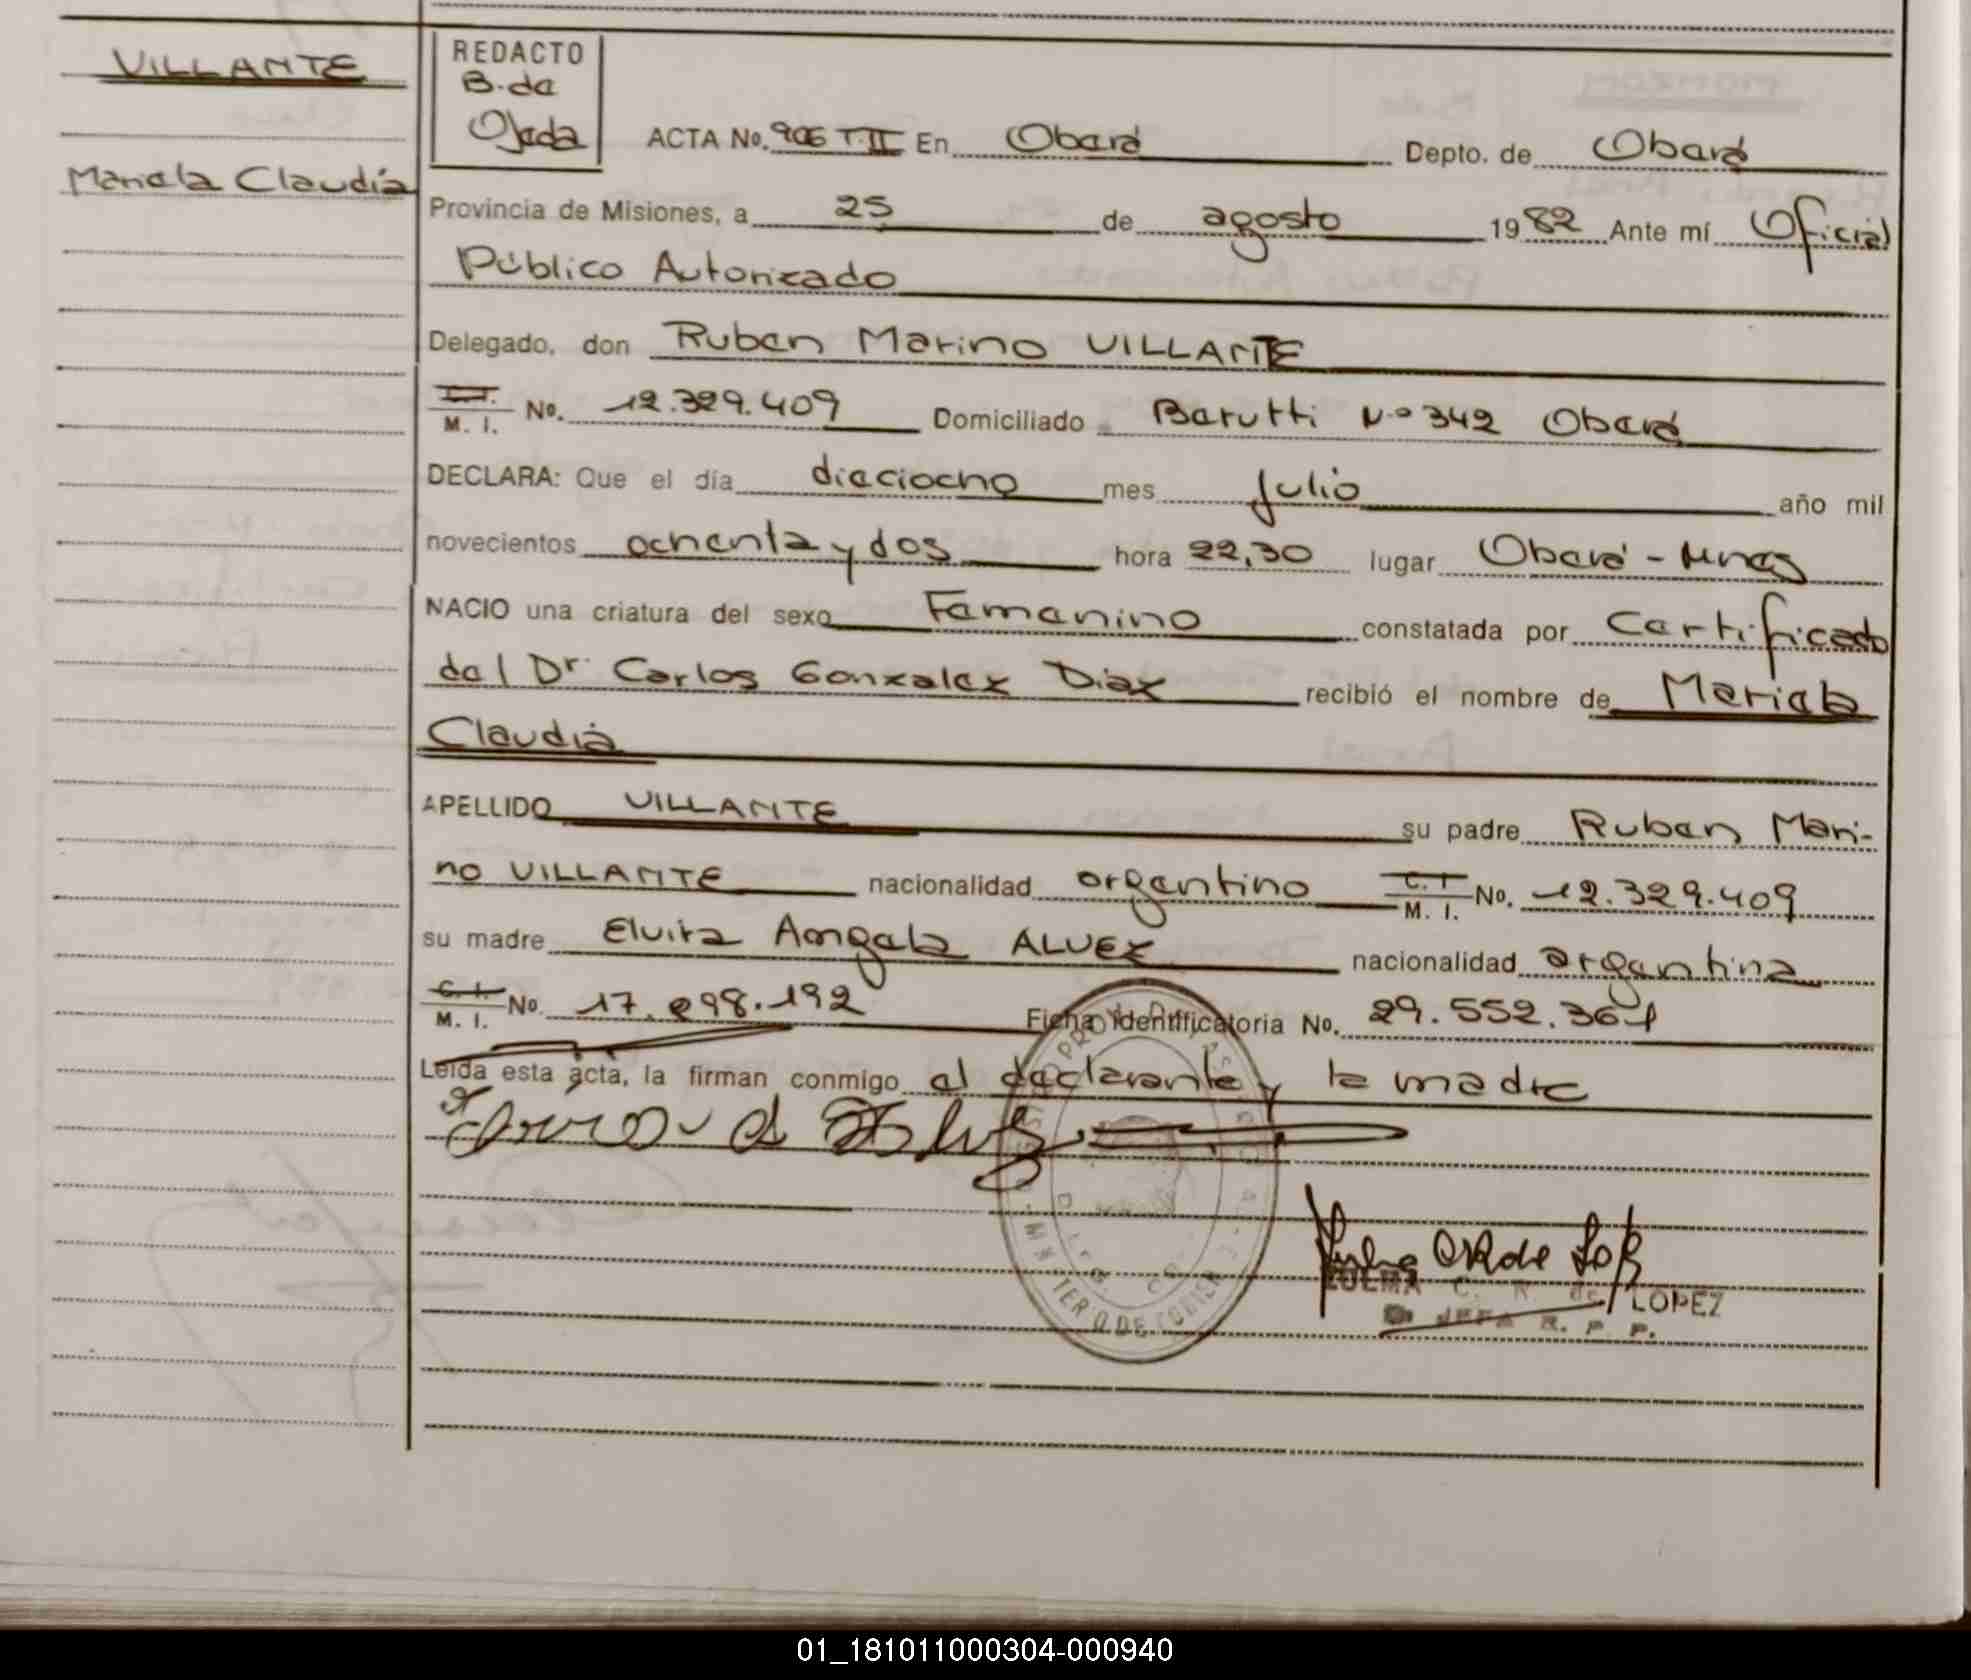 VILLANTE
Mariela Claudia
REDACTO
B. de
Ojeda
ACTA No. 906 T.II En Oberá Depto. de Oberá
Provincia de Misiones, a 25 de agosto 1982 Ante mí Oficial
Público Autorizado
Delegado, don Ruben Marino VILLANTE
C. I. M. I. No. 12.329.409 Domiciliado Berutti Nº 342 Oberá
DECLARA: Que el día dieciocho mes julio año mil
novecientos ochenta y dos hora 22,30 lugar Oberá - Mnes
NACIO una criatura del sexo Femenino constatada por Certificado
del Dr. Carlos Gonzalez Diaz recibió el nombre de Mariela
Claudia
APELLIDO VILLANTE su padre Ruben Mari-
no VILLANTE nacionalidad argentino C. I. M. I. No. 12.329.409
su madre Elvira Angela ALVEZ nacionalidad argentina
C. I. M. I. No. 17.298.192 Ficha Identificatoria No. 29.552.361
Leída esta acta, la firman conmigo el declarante y la madre
ZULMA C. R. de LOPEZ
JEFA R. P. P.
01_181011000304-000940